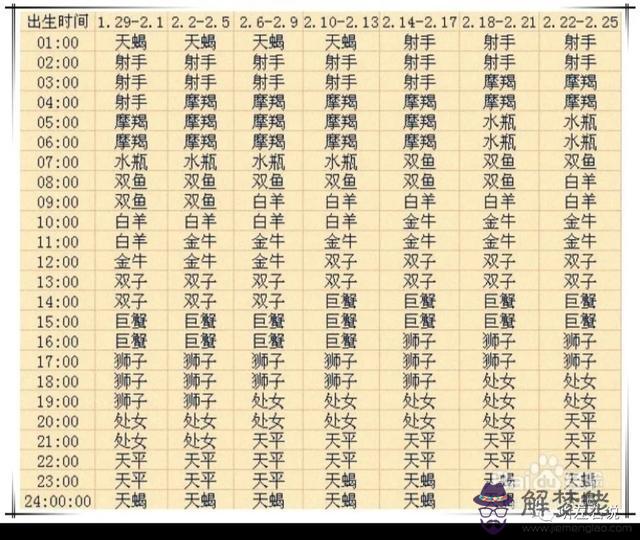 出生时间 1.29-2.1 2.2-2.5 2.6-2.9 2.10-2.13 2.14-2.17 2.18-2.21 2.22-2.25
01:00 天蝎 天蝎 天蝎 天蝎 射手 射手 射手
02:00 射手 射手 射手 射手 射手 射手 射手
03:00 射手 射手 射手 射手 射手 摩羯 摩羯
04:00 射手 摩羯 摩羯 摩羯 摩羯 摩羯 摩羯
05:00 摩羯 摩羯 摩羯 摩羯 摩羯 水瓶 水瓶
06:00 摩羯 摩羯 摩羯 摩羯 摩羯 水瓶 水瓶
07:00 水瓶 水瓶 水瓶 水瓶 双鱼 双鱼 双鱼
08:00 双鱼 双鱼 双鱼 双鱼 双鱼 双鱼 白羊
09:00 双鱼 双鱼 白羊 白羊 白羊 白羊 白羊
10:00 白羊 白羊 白羊 白羊 金牛 金牛 金牛
11:00 白羊 金牛 金牛 金牛 金牛 金牛 金牛
12:00 金牛 金牛 金牛 双子 双子 双子 双子
13:00 双子 双子 双子 双子 双子 双子 双子
14:00 双子 双子 双子 巨蟹 巨蟹 巨蟹 巨蟹
15:00 巨蟹 巨蟹 巨蟹 巨蟹 巨蟹 巨蟹 巨蟹
16:00 巨蟹 巨蟹 巨蟹 巨蟹 狮子 狮子 狮子
17:00 狮子 狮子 狮子 狮子 狮子 狮子 狮子
18:00 狮子 狮子 狮子 狮子 狮子 处女 处女
19:00 狮子 狮子 处女 处女 处女 处女 处女
20:00 处女 处女 处女 处女 处女 处女 天平
21:00 处女 处女 天平 天平 天平 天平 天平
22:00 天平 天平 天平 天平 天平 天平 天平
23:00 天平 天平 天平 天蝎 天蝎 天蝎 天蝎
24:00:00 天蝎 天蝎 天蝎 天蝎 天蝎 天蝎
解梦佬
www.jiemenglao.com